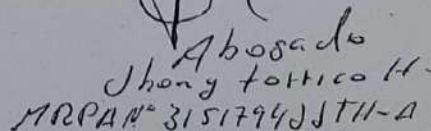 Abogado
Jhony torrico H.
MRPAN° 3151794JJTH-A